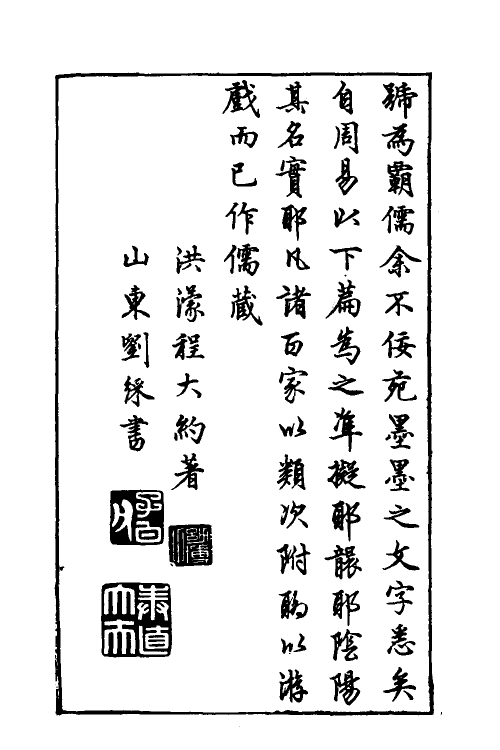 號為霸儒余不佞苑墨墨之文字悉矣
自周易以下篇為之準擬耶譺耶陰陽
其名實耶凡諸百家以類次附聊以游
戲而已作儒藏
洪濛程大約著
山東劉綵書